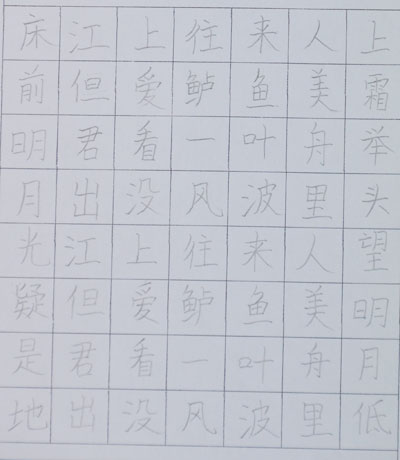 床江上往来人上
前但爱鲈鱼美霜
明君看一叶舟举
月出没风波里头
光江上往来人望
疑但爱鲈鱼美明
是君看一叶舟月
地出没风波里低